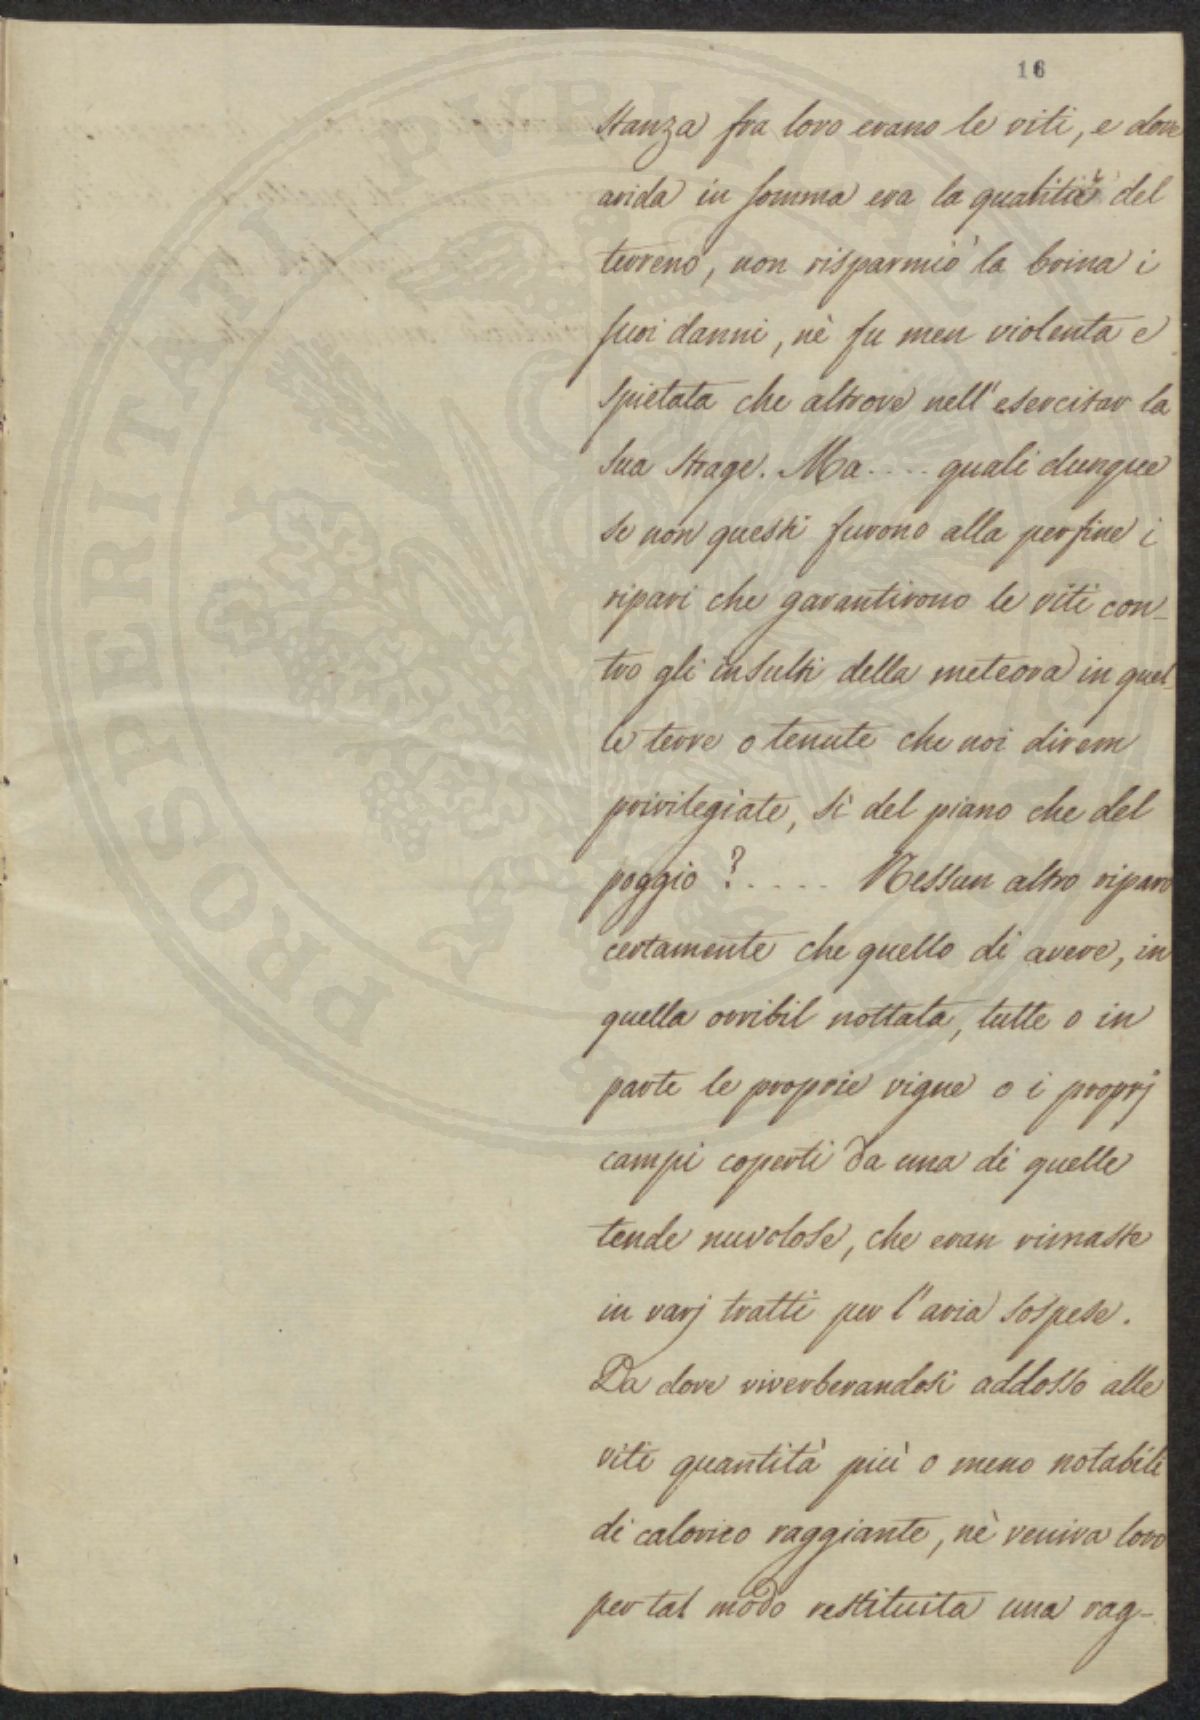 16
stanza fra loro erano le viti, e dove
arida in somma era la qualità del
terreno, non risparmiò la brina i
suoi danni, nè fu men violenta e
spietata che altrove nell'esercitar la
sua strage. Ma.... quali dunque
se non questi furono alla perfine i
ripari che garantirono le viti con-
tro gli insulti della meteora in quel-
le terre o tenute che noi direm
privilegiate, sì del piano che del
poggio?..... Nessun altro riparo
certamente che quello di avere, in
quella orribil nottata, tutte o in
parte le proprie vigne o i proprj
campi coperti da una di quelle
tende nuvolose, che eran rimaste
in varj tratti per l'aria sospese.
Da dove riverberandosi addosso alle
viti quantità più o meno notabili
di calorico raggiante, nè veniva loro
per tal modo restituita una rag-
PROSPERITATI PVBLICAE